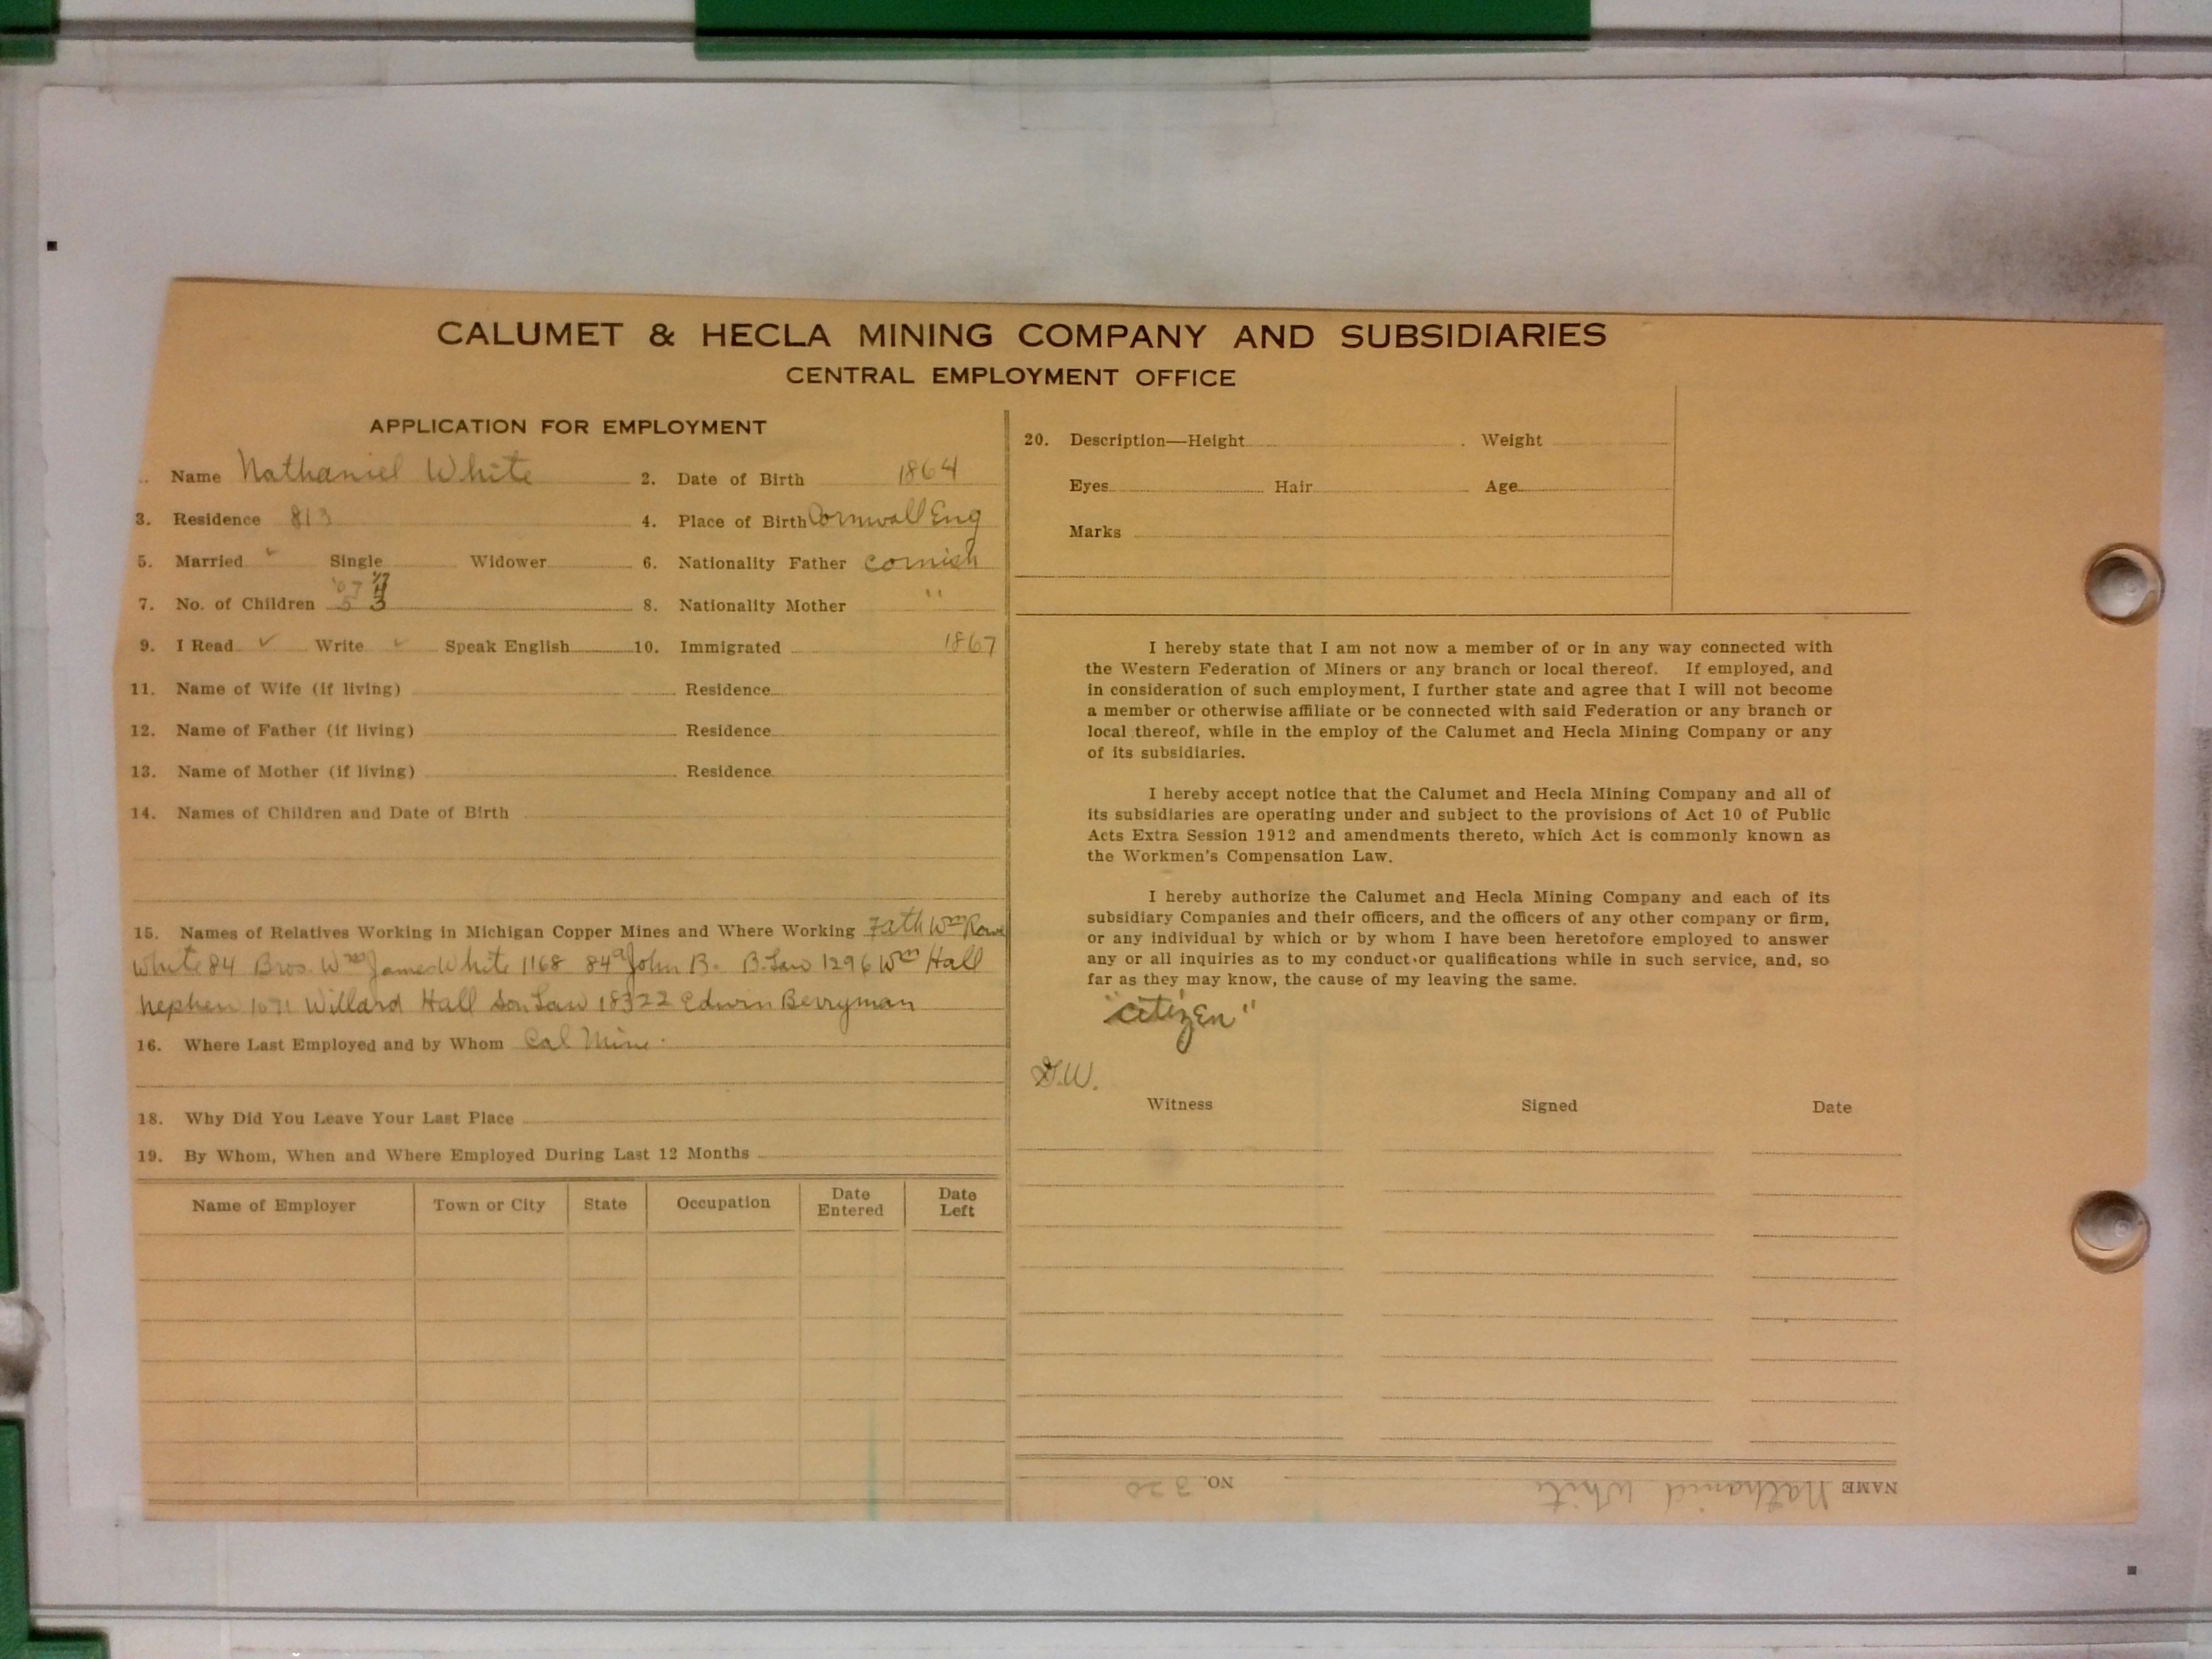 CALUMET & HECLA MINING COMPANY AND SUBSIDIARIES
CENTRAL EMPLOYMENT OFFICE
APPLICATION FOR EMPLOYMENT
Name Nathaniel White 2. Date of Birth 1864
3. Residence 813 4. Place of Birth Cornwall Eng
5. Married ✓ Single Widower 6. Nationality Father Cornish
'07 '17
4
7. No. of Children 5 3 8. Nationality Mother "
9. I Read ✓ Write ✓ Speak English 10. Immigrated 1867
11. Name of Wife (if living) Residence
12. Name of Father (if living) Residence
13. Name of Mother (if living) Residence
14. Names of Children and Date of Birth
15. Names of Relatives Working in Michigan Copper Mines and Where Working Fath Wm
White 84 Bros. Wm James White 1168 849 John R. B. Law 1296 Wm Hall
Nephew 1071 Willard Hall Son Law 18322 Edwin Berryman
16. Where Last Employed and by Whom Cal Mine
18. Why Did You Leave Your Last Place
19. By Whom, When and Where Employed During Last 12 Months
Name of Employer Town or City State Occupation Date Entered Date Left
20. Description—Height Weight
Eyes Hair Age
Marks
I hereby state that I am not now a member of or in any way connected with
the Western Federation of Miners or any branch or local thereof. If employed, and
in consideration of such employment, I further state and agree that I will not become
a member or otherwise affiliate or be connected with said Federation or any branch or
local thereof, while in the employ of the Calumet and Hecla Mining Company or any
of its subsidiaries.
I hereby accept notice that the Calumet and Hecla Mining Company and all of
its subsidiaries are operating under and subject to the provisions of Act 10 of Public
Acts Extra Session 1912 and amendments thereto, which Act is commonly known as
the Workmen's Compensation Law.
I hereby authorize the Calumet and Hecla Mining Company and each of its
subsidiary Companies and their officers, and the officers of any other company or firm,
or any individual by which or by whom I have been heretofore employed to answer
any or all inquiries as to my conduct or qualifications while in such service, and, so
far as they may know, the cause of my leaving the same.
"Citizen"
D.W.
Witness Signed Date
NAME Nathaniel White NO. 320